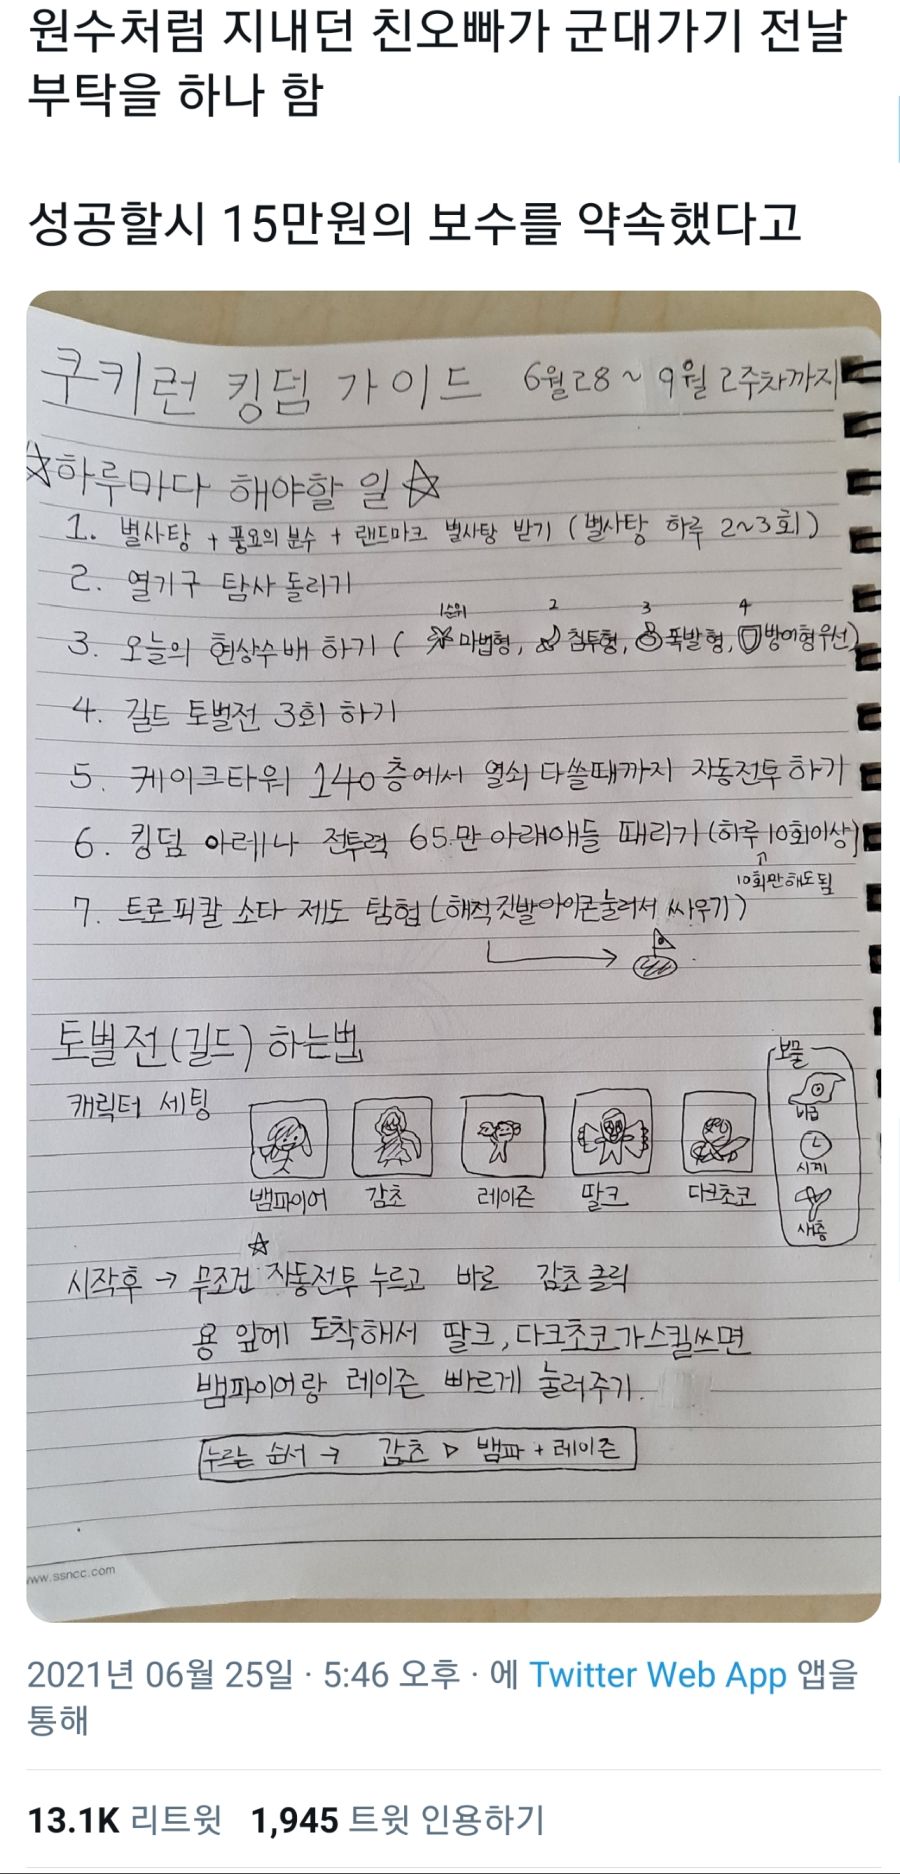 원수처럼 지내던 친오빠가 군대가기 전날
부탁을 하나 함
성공할시 15만원의 보수를 약속했다고
쿠키런 킹덤 가이드 6월28 ~ 9월 2주차까지
☆하루마다 해야할 일☆
1. 별사탕 + 풍요의 분수 + 랜드마크 별사탕 받기 (별사탕 하루 2~3회)
2. 열기구 탐사 돌리기
1순위 2 3 4
3. 오늘의 현상수배 하기 ( 마법형, 침투형, 폭발형, 방어형 우선)
4. 길드 토벌전 3회 하기
5. 케이크타워 140층에서 열쇠 다쓸때까지 자동전투 하기
6. 킹덤 아레나 전투력 65만 아래애들 때리기 (하루 10회이상)
10회만해도 됨
7. 트로피칼 소다 제도 탐험 (해적깃발아이콘눌러서 싸우기)
토벌전(길드) 하는법
보물
캐릭터 세팅
시계
뱀파이어 감초 레이즌 딸크 다크초코
☆
시작후 → 무조건 자동전투 누르고 바로 감초 클릭
용 앞에 도착해서 딸크, 다크초코가 스킬쓰면
뱀파이어랑 레이즌 빠르게 눌러주기.
누르는 순서 → 감초 ▷ 뱀파 + 레이즌
www.ssncc.com
2021년 06월 25일 · 5:46 오후 · 에 Twitter Web App 앱을
통해
13.1K 리트윗 1,945 트윗 인용하기